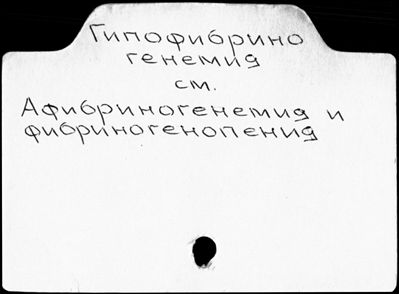 Гипофибрино
генемия
см.
Афибриногенемия и
фибриногенопения